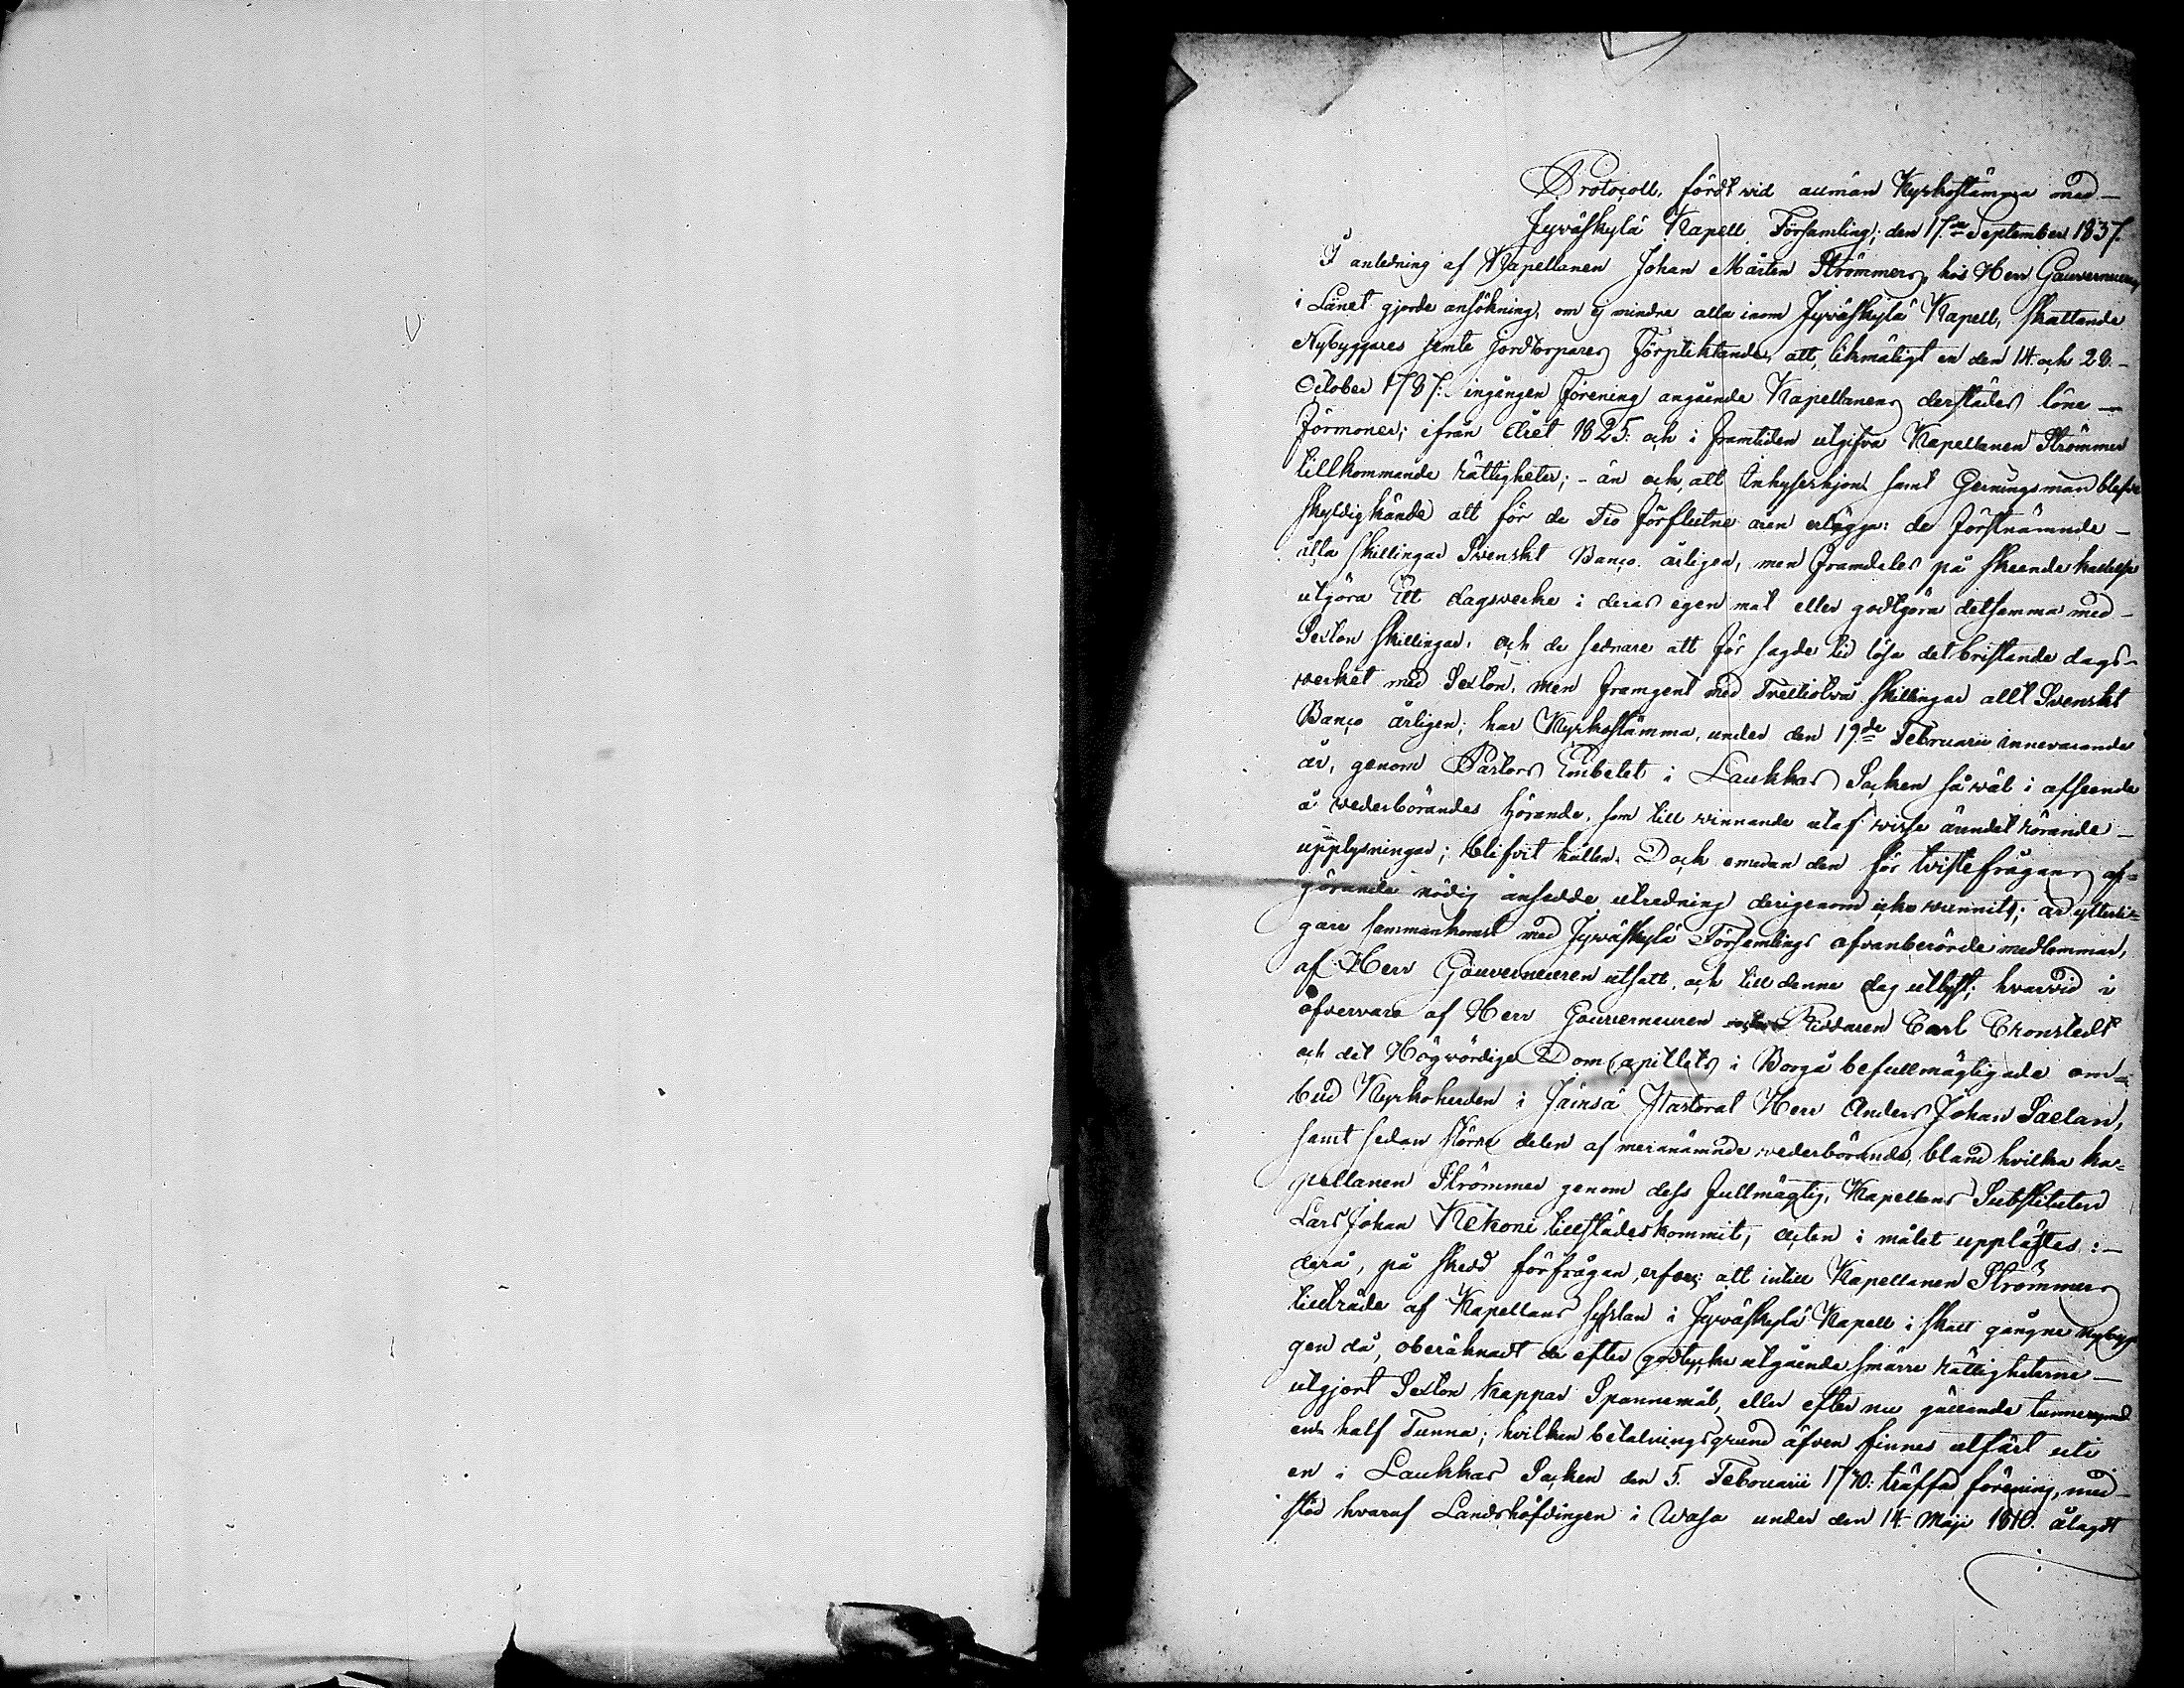 Protocoll, fördt vid allmän Kyrkostämma med
Jyväskylä Kapell Församling; den 17de September 1837.
I anledning af Kapellanen Johan Mårten Strömmers, hos Herr Gouverneuren
i Länet gjorde ansökning, om ej mindre alla inom Jyväskylä Kapell, skattande
Nybyggares jemte jordtorpares förpliktande, att, likmätigt en den 14. och 28.
October 1787. ingången förening angående Kapellanens derstädes löne
förmoner; ifrån året 1825. och i framtiden utgifva Kapellanen Strömmer
tillkommande rättigheter; - än och, att Inhyseshjon samt Gerningsmän blefve
skyldig kände att för de Tio förflutne åren erlägga: de förstnämnde
åtta skillingar Svenskt Banco årligen, men framdeles på skeende kallelse
utgöra Ett dagsverke i deras egen mat eller godtgöra detsamma med
Sexton skillingar, och de sednare att för sagde tid lösa det bristande dags-
verket med Sexton, men framgent med Trettiotvå skillingar allt Svenskt
Banco årligen; har Kyrkostämma, under den 19de Februarii innevarande
år, genom Pastors Embetet i Laukkas Socken så väl i afseende
å vederbörandes hörande, som till vinnande utaf visse ärendet rörande
upplysningar; blifvit hållen. Dock emedan den för tvistefrågans af-
görande nödig ansedde utredning derigenom icke vunnits; är ytterli-
gare sammankomst med Jyväskylä Församlings ofvanberörde medlemmar,
af Herr Gouverneuren utsatt, och till denna dag utlyst; hvarvid i
öfvervaro af Herr Gouverneuren Riddaren Carl Cronstedt
och det Högvördige DomCapitlets i Borgå befullmägtigade om-
bud Kyrkoherden i Jämsä Pastorat Herr Anders Johan Saelan,
samt sedan större delen af meranämnde vederbörande, bland hvilka Ka-
pellanen Strömmer genom dess fullmägtig, Kapellans Substituten
Lars Johan Kekoni tillstädeskommit, acten i målet upplästes:
derå, på skedd förfrågan, erfors: att intill Kapellanen Strömmers
tillträde af Kapellans sysslan i Jyväskylä Kapell i skatt gångne nybyg-
gen då, oberäknadt de efter godtycke utgående smärre rättigheterne
utgjort Sexton kappar Spannemål, eller efter nu gällande tunnerymd
en half Tunna; hvilken betalningsgrund äfven finnes utfäst uti
en i Laukkas Socken den 5. Februarii 1770. träffad förening, med
stöd hvaraf Landshöfdingen i Wasa under den 14 Maji 1810. ålagdt